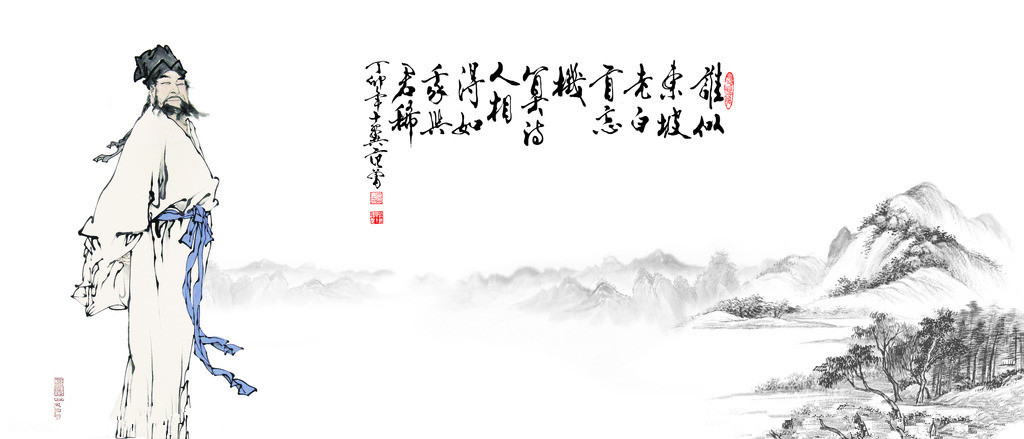 誰似
東坡
老白
首忘
機
算詩
人相
得如
我與
君稀
丁卯年十翼范曾